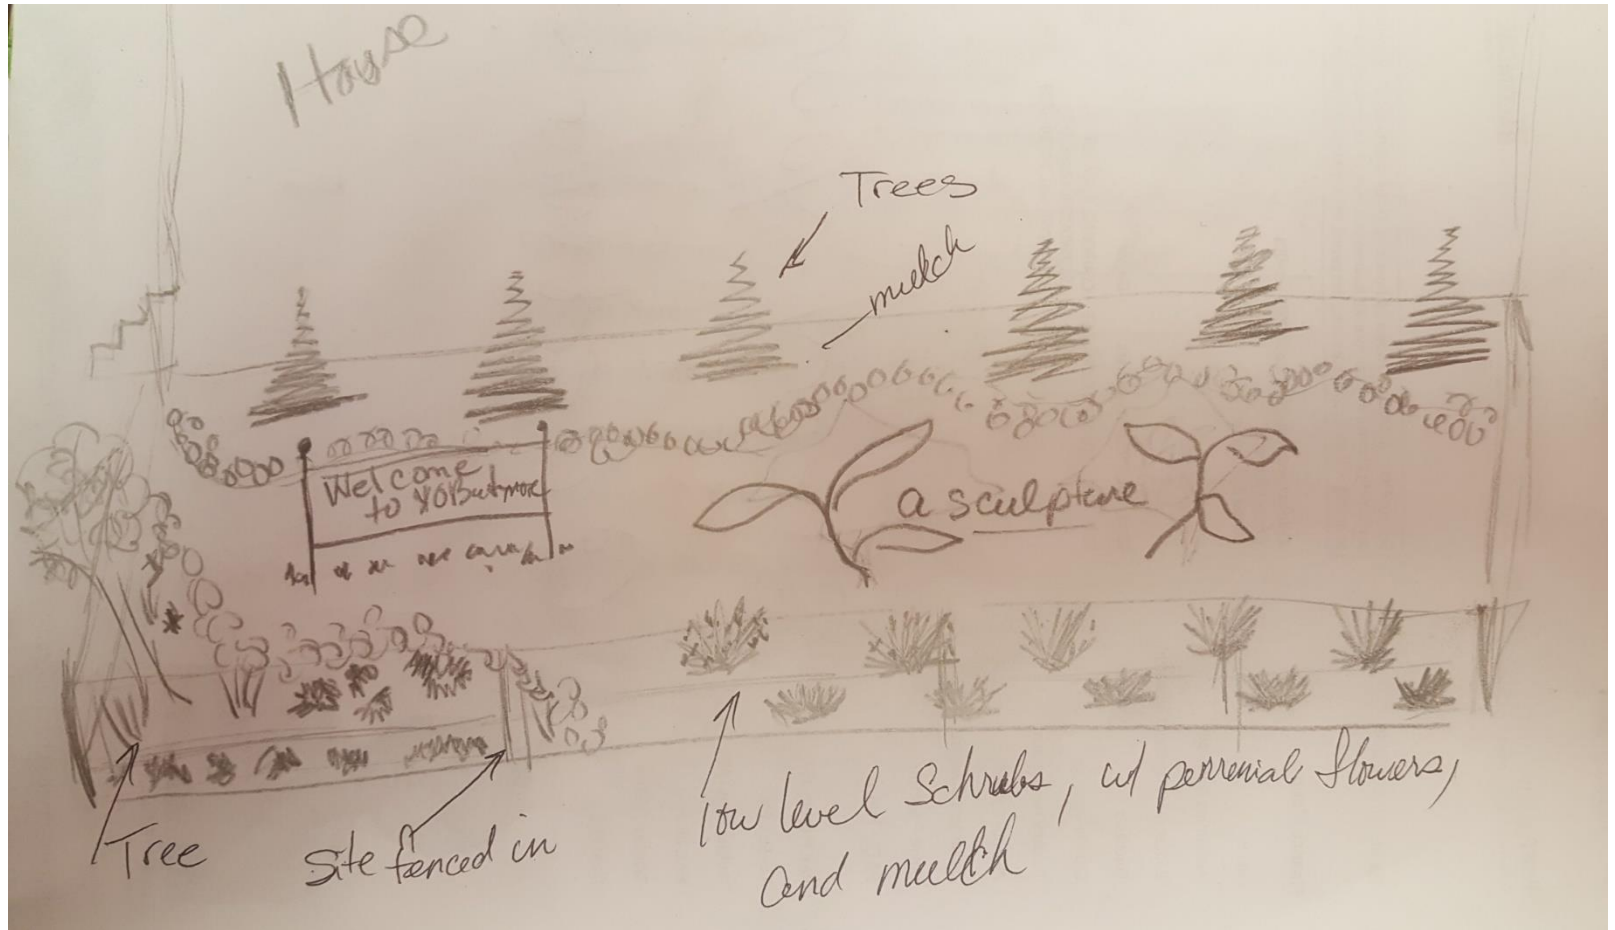 House
Trees
mulch
Welcome
to
a sculpture
Tree
Site fenced in
low level Schrubs, w/ perrenial flowers,
and mulch